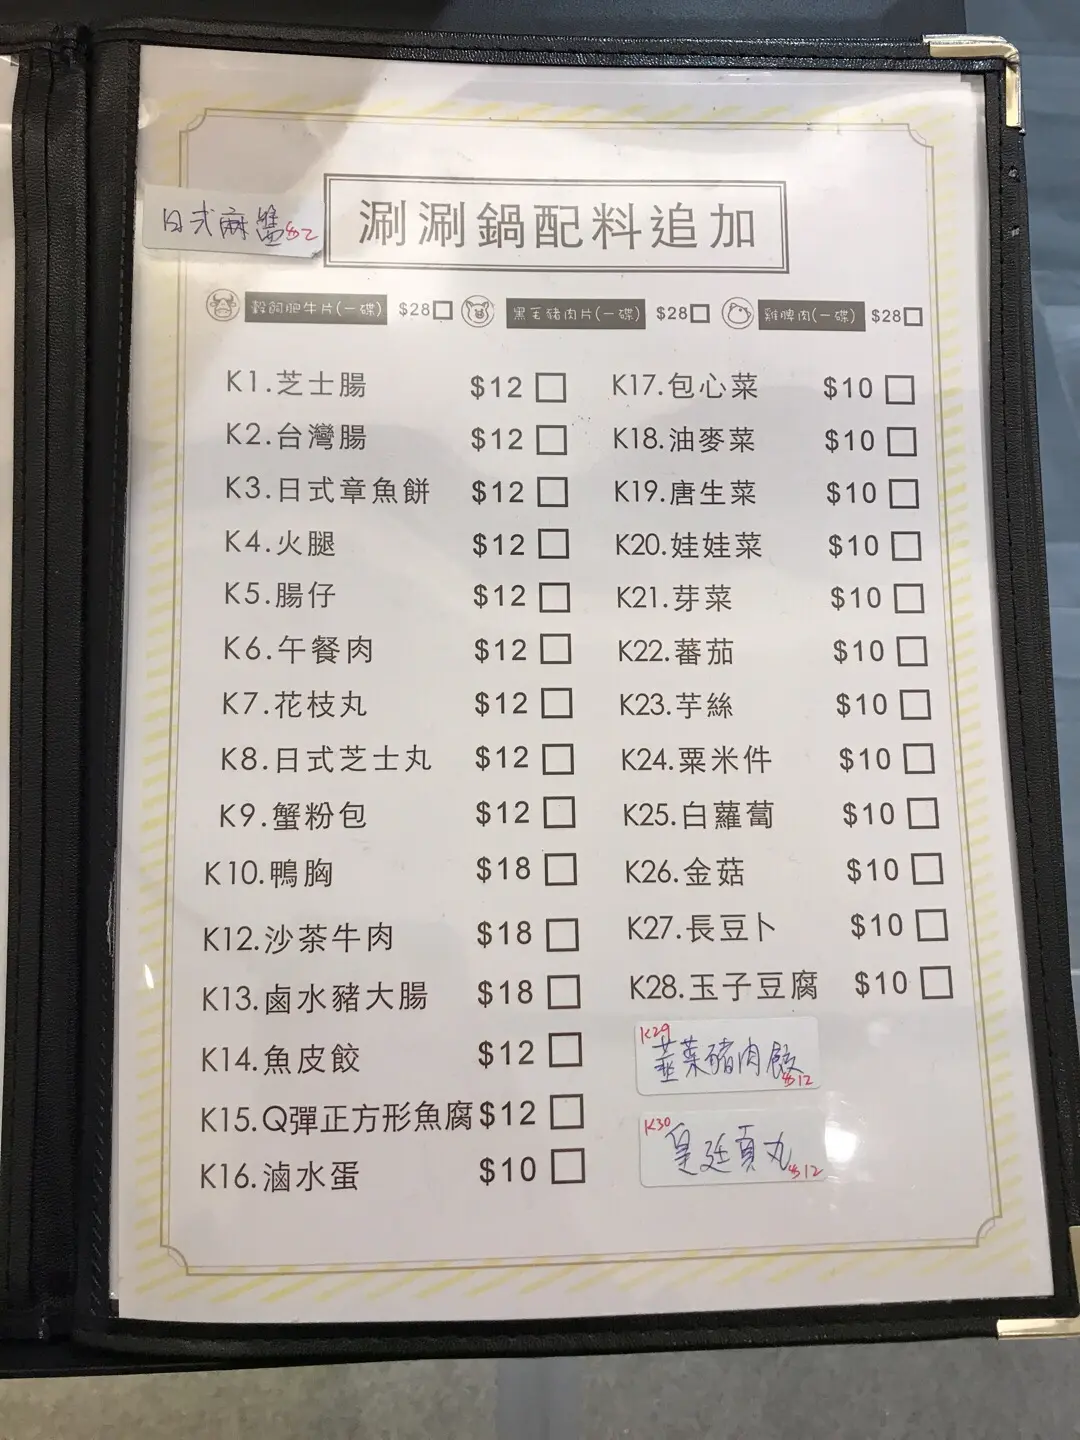 日式麻醬$2
涮涮鍋配料追加
穀飼肥牛片(一碟) $28
黑毛豬肉片(一碟) $28
雞脾肉(一碟) $28
K1.芝士腸 $12
K2.台灣腸 $12
K3.日式章魚餅 $12
K4.火腿 $12
K5.腸仔 $12
K6.午餐肉 $12
K7.花枝丸 $12
K8.日式芝士丸 $12
K9.蟹粉包 $12
K10.鴨胸 $18
K12.沙茶牛肉 $18
K13.鹵水豬大腸 $18
K14.魚皮餃 $12
K15.Q彈正方形魚腐 $12
K16.滷水蛋 $10
K17.包心菜 $10
K18.油麥菜 $10
K19.唐生菜 $10
K20.娃娃菜 $10
K21.芽菜 $10
K22.蕃茄 $10
K23.芋絲 $10
K24.粟米件 $10
K25.白蘿蔔 $10
K26.金菇 $10
K27.長豆卜 $10
K28.玉子豆腐 $10
K29
韮菜豬肉餃
$12
K30
皇廷貢丸
$12